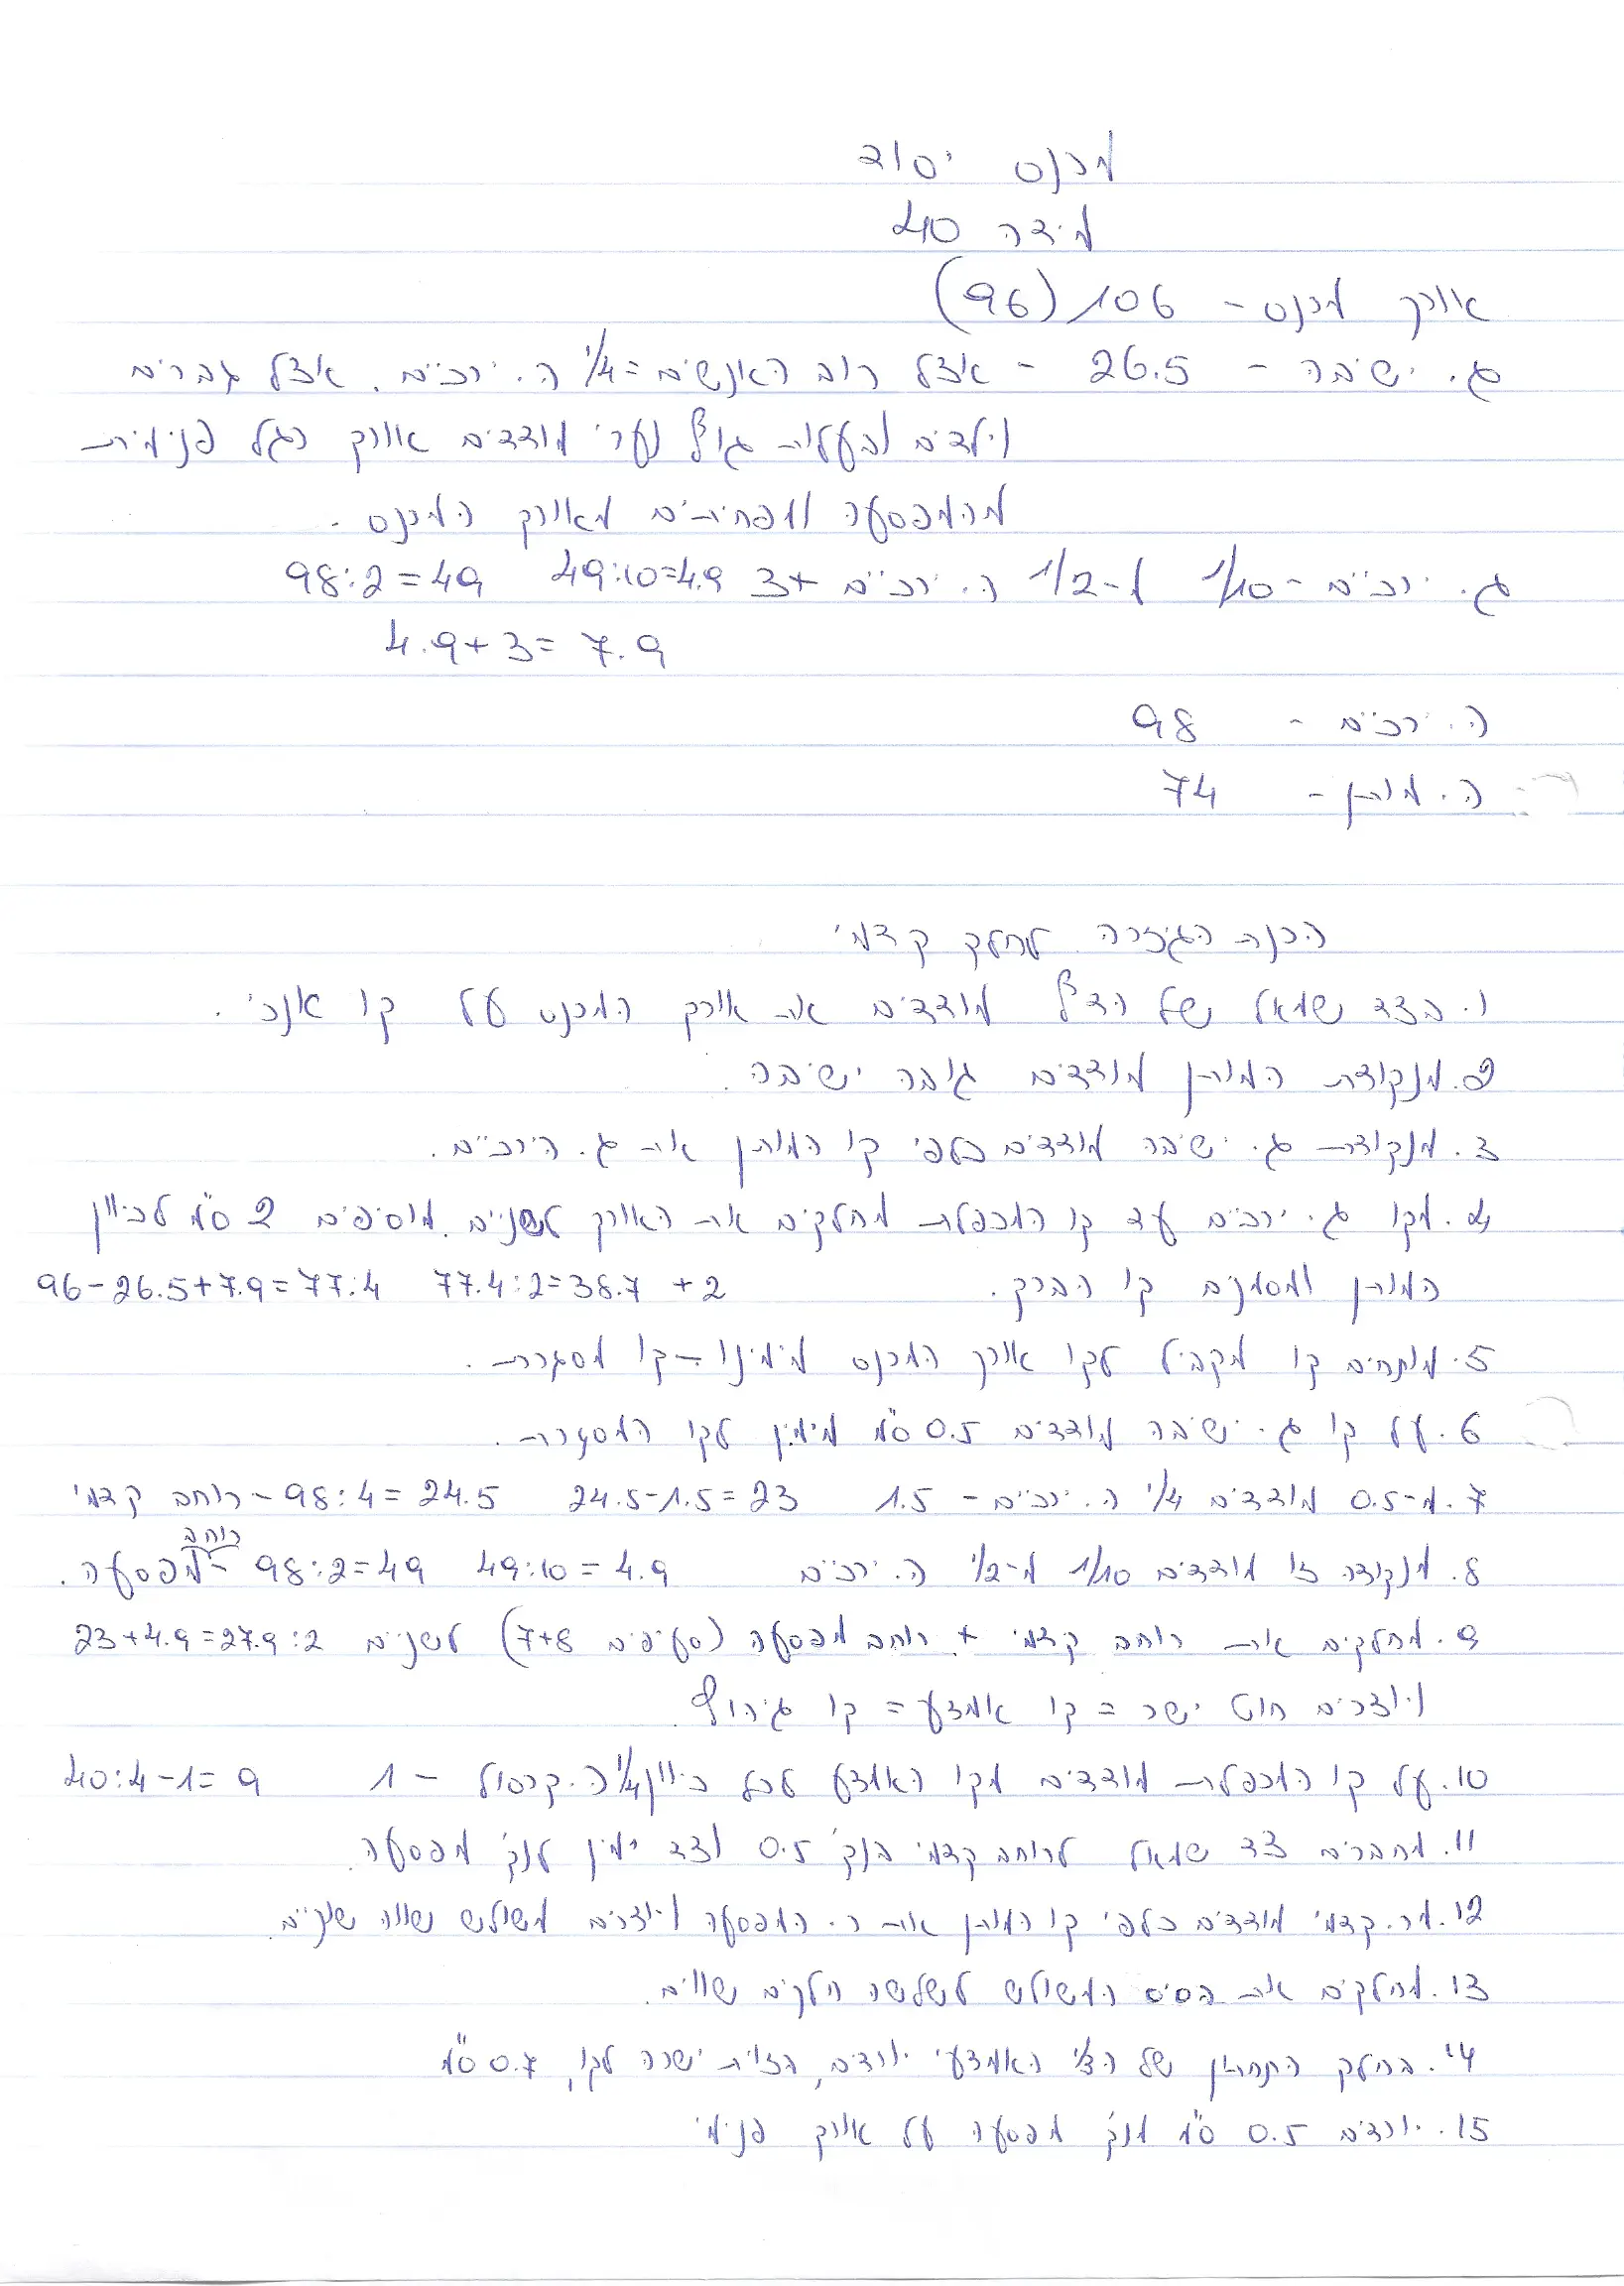 מכנס יסוד
מידה 40
אורך מכנס - 106 (96)
ג. ישיבה - 26.5 - אצל רוב האנשים = 1/4 ה. ירכיים. אצל גברים
וילדים ובעלות גוף נערי מודדים אורך רגל פנימית
מהמפסעה ומפחיתים מאורך המכנס.
ג. ירכיים - 1/10 מ-1/2 ה. ירכיים +3 49:10=4.9 98:2=49
4.9+3=7.9
ה. ירכיים - 98
ה. מותן - 74
הכנת הגיזרה לחלק קדמי
1. בצד שמאל של הדף מודדים את אורך המכנס על קו אנכי.
2. מנקודת המותן מודדים גובה ישיבה.
3. מנקודת ג. ישיבה מודדים כלפי קו המותן את ג. הירכיים.
4. מקו ג. ירכיים עד קו המכפלת מחלקים את האורך לשניים. מוסיפים 2 ס"מ לכיוון
המותן ומסמנים קו הברך. 96-26.5+7.9=77.4 77.4:2=38.7 +2
5. מותחים קו מקביל לקו אורך המכנס מימינו - קו מסגרת.
6. על קו ג. ישיבה מודדים 0.5 ס"מ מימין לקו המסגרת.
7. מ-0.5 מודדים 1/4 ה. ירכיים - 1.5 24.5-1.5=23 98:4=24.5 - רוחב קדמי
8. מנקודה זו מודדים 1/10 מ-1/2 ה. ירכיים 49:10=4.9 98:2=49 - רוחב מפסעה.
9. מחלקים את רוחב קדמי + רוחב מפסעה (סעיפים 7+8) לשניים 23+4.9=27.9:2
ויוצרים חוט ישר = קו אמצע = קו גיהוץ.
10. על קו המכפלת מודדים מקו האמצע לכל כיוון 1/4 ה. קרסול - 1 40:4-1=9
11. מחברים צד שמאל לרוחב קדמי בנק' 0.5 וצד ימין לנק' מפסעה.
12. מר. קדמי מודדים כלפי קו המותן את ר. המפסעה ויוצרים משולש שווה שוקיים.
13. מחלקים את בסיס המשולש לשלשה חלקים שווים.
14. בחלק התחתון של הצ'י האמצעי יורדים, בזוית ישרה לקו, 0.7 ס"מ
15. יורדים 0.5 ס"מ מנק' מפסעה על אורך פנימי